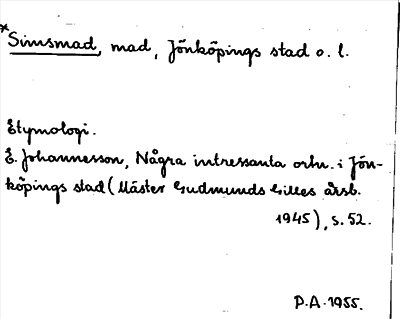 *Simsmad, mad, Jönköpings stad o. l.
Etymologi.
E. Johannesson, Några intressanta ortn. i Jön-
köpings stad (Mäster Gudmunds Gilles årsb.
1945), s. 52.
P.A. 1955.